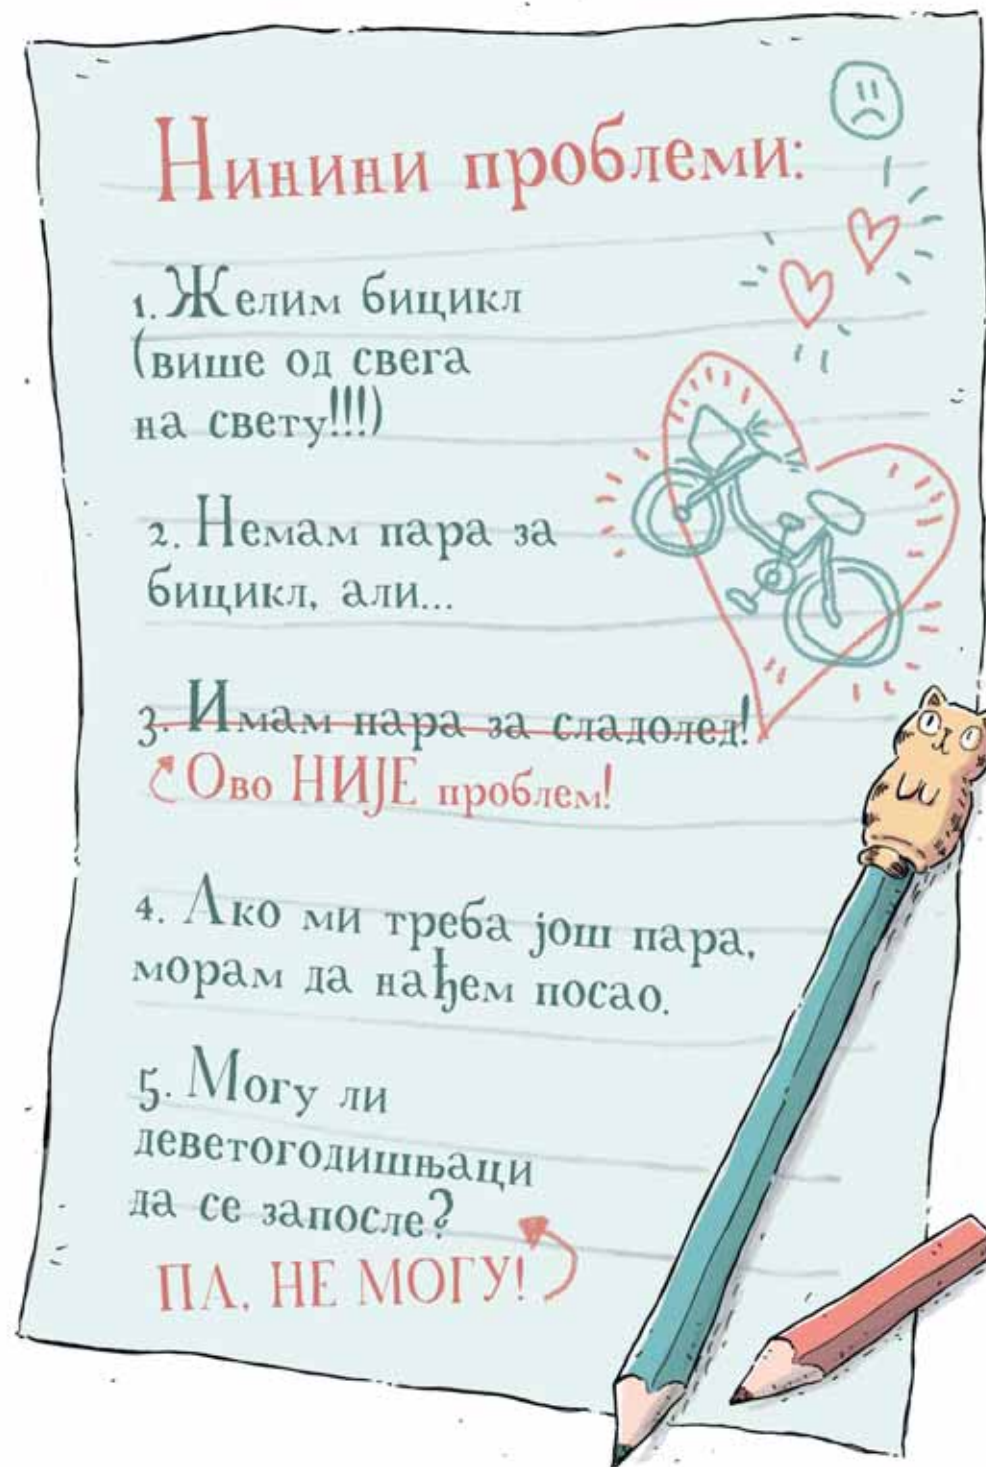 Нинини проблеми:
1. Желим бицикл
(више од свега
на свету!!!)
2. Немам пара за
бицикл, али...
3. Имам пара за сладолед!
Ово НИЈЕ проблем!
4. Ако ми треба још пара,
морам да нађем посао.
5. Могу ли
деветогодишњаци
да се запосле?
ПА, НЕ МОГУ!